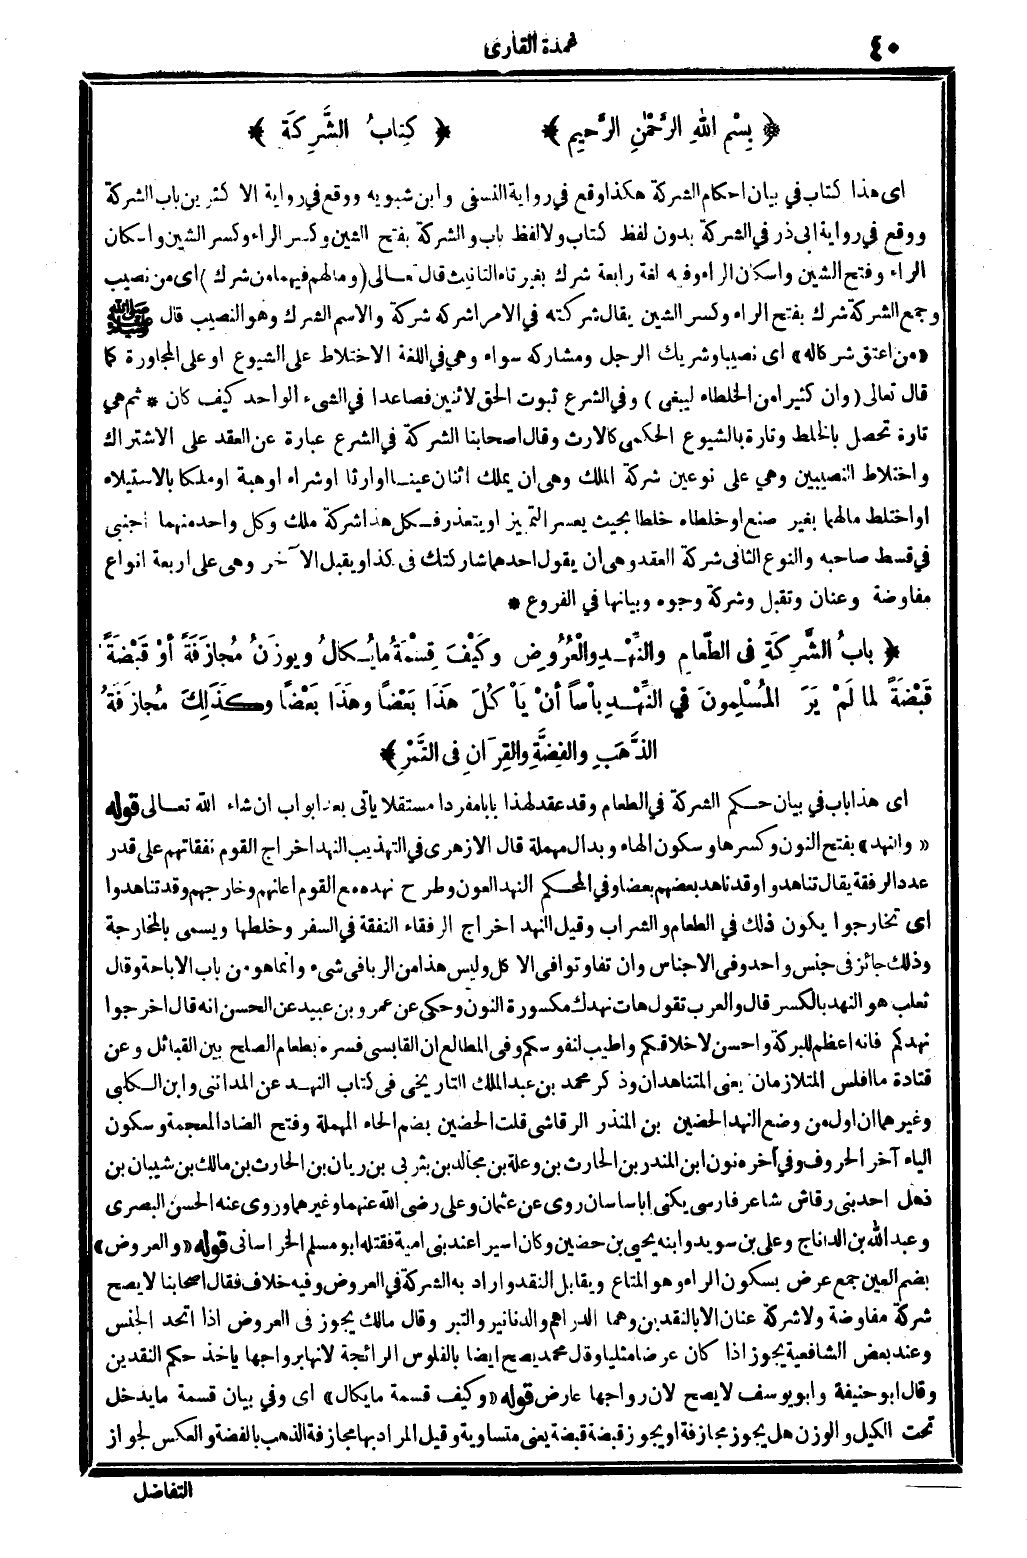 ٤٠
عمدة القارئ
﴿ بِسْمِ اللهِ الرَّحْمٰنِ الرَّحِيمِ ﴾ ﴿ كِتَابُ الشَّرِكَةِ ﴾
اى هذا كتاب في بيان احكام الشركة هكذا وقع في رواية النسفى وابن شبويه ووقع في رواية الاكثرين باب الشركة
ووقع في رواية ابى ذر في الشركة بدون لفظ كتاب ولا لفظ باب والشركة بفتح الشين وكسر الراء وكسر الشين واسكان
الراء وفتح الشين واسكان الراء وفيه لغة رابعة شرك بغير تاء التانيث قال تعالى (ومالهم فيهما من شرك) اى من نصيب
وجمع الشركة شرك بفتح الراء وكسر الشين يقال شركته في الامر اشركه شركة والاسم الشرك وهو النصيب قال ﷺ
«من اعتق شركا له» اى نصيبا وشريك الرجل ومشاركه سواء وهي في اللغة الاختلاط على الشيوع او على المجاورة كما
قال تعالى (وان كثيرا من الخلطاء ليبغى) وفي الشرع ثبوت الحق لاثنين فصاعدا في الشىء الواحد كيف كان * ثم هي
تارة تحصل بالخلط وتارة بالشيوع الحكمى كالارث وقال اصحابنا الشركة في الشرع عبارة عن العقد على الاشتراك
واختلاط النصيبين وهي على نوعين شركة الملك وهى ان يملك اثنان عينا او ارثا او شراء او هبة او ملكا بالاستيلاء
او اختلط مالهما بغير صنع او خلطاه خلطا بحيث يعسر التمييز او يتعذر فكل هذا شركة ملك وكل واحد منهما اجنبى
في قسط صاحبه والنوع الثانى شركة العقد وهى ان يقول احدهما شاركتك فى كذا ويقبل الآخر وهى على اربعة انواع
مفاوضة وعنان وتقبل وشركة وجوه وبيانها في الفروع *
﴿ بابُ الشَّرِكَةِ فى الطَّعامِ والنِّهْدِ والْعُرُوضِ وكَيْفَ قِسْمَةُ مايُكالُ ويوزَنُ مُجازَفَةً أوْ قَبْضَةً
قَبْضَةً لما لَمْ يَرَ المُسْلِمونَ في النِّهْدِ بأْساً أنْ يَأْكُلَ هَذَا بَعْضًا وهَذَا بَعْضًا وكَذَلِكَ مُجازَفَةُ
الذَّهَبِ والفِضَّةِ والقِرَانِ فى التَّمْرِ ﴾
اى هذا باب في بيان حكم الشركة في الطعام وقد عقد لهذا بابا مفردا مستقلا يأتى بعد ابواب ان شاء الله تعالى قوله
«والنهد» بفتح النون وكسرها وسكون الهاء وبدال مهملة قال الازهرى في التهذيب النهد اخراج القوم نفقاتهم على قدر
عدد الرفقة يقال تناهدوا وقد ناهد بعضهم بعضا وفي المحكم النهد العون وطرح نهده مع القوم اعانهم وخارجهم وقد تناهدوا
اى تخارجوا يكون ذلك في الطعام والشراب وقيل النهد اخراج الرفقاء النفقة في السفر وخلطها ويسمى بالمخارجة
وذلك جائز فى جنس واحد وفى الاجناس وان تفاوتوا فى الاكل وليس هذا من الربا في شىء وانما هو من باب الاباحة وقال
ثعلب هو النهد بالكسر قال والعرب تقول هات نهدك مكسورة النون وحكى عن عمرو بن عبيد عن الحسن انه قال اخرجوا
نهدكم فانه اعظم للبركة واحسن لاخلاقكم واطيب لنفوسكم وفى المطالع ان القابسى فسره بطعام الصلح بين القبائل وعن
قتادة ما افلس المتلازمان يعنى المتناهدان وذكر محمد بن عبد الملك التاريخى فى كتاب النهد عن المدائنى وابن الكلبى
وغيرهما ان اول من وضع النهد الحضين بن المنذر الرقاشى قلت الحضين بضم الحاء المهملة وفتح الضاد المعجمة وسكون
الياء آخر الحروف وفي آخره نون ابن المنذر بن الحارث بن وعلة بن مجالد بن يثربى بن ريان بن الحارث بن مالك بن شيبان بن
ذهل احد بنى رقاش شاعر فارسى يكنى ابا ساسان روى عن عثمان وعلى رضى الله عنهما وغيرهما وروى عنه الحسن البصرى
وعبد الله بن الداناج وعلى بن سويد وابنه يحيى بن حضين وكان اسيرا عند بنى امية فقتله ابو مسلم الخراسانى قوله «والعروض»
بضم العين جمع عرض بسكون الراء وهو المتاع ويقابل النقد واراد به الشركة في العروض وفيه خلاف فقال اصحابنا لا يصح
شركة مفاوضة ولا شركة عنان الا بالنقدين وهما الدراهم والدنانير والتبر وقال مالك يجوز فى العروض اذا اتحد الجنس
وعند بعض الشافعية يجوز اذا كان عرضا مثليا وقال محمد يصح ايضا بالفلوس الرائجة لانها برواجها يأخذ حكم النقدين
وقال ابو حنيفة وابو يوسف لا يصح لان رواجها عارض قوله «وكيف قسمة مايكال» اى وفي بيان قسمة ما يدخل
تحت الكيل والوزن هل يجوز مجازفة او يجوز قبضة قبضة يعنى متساوية وقيل المراد بها مجازفة الذهب بالفضة والعكس لجواز
التفاضل